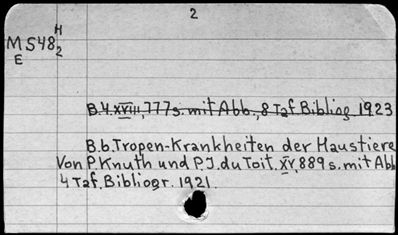 2
M548 H
E 2
B.4.XVIII,777s.mit Abb.,8 Taf Bibliog. 1923
B.6.Tropen-Krankheiten der Haustiere
Von P.Knuth und P.J.du Toit.XV,889s.mit Abb
4 Taf.Bibliogr. 1921.